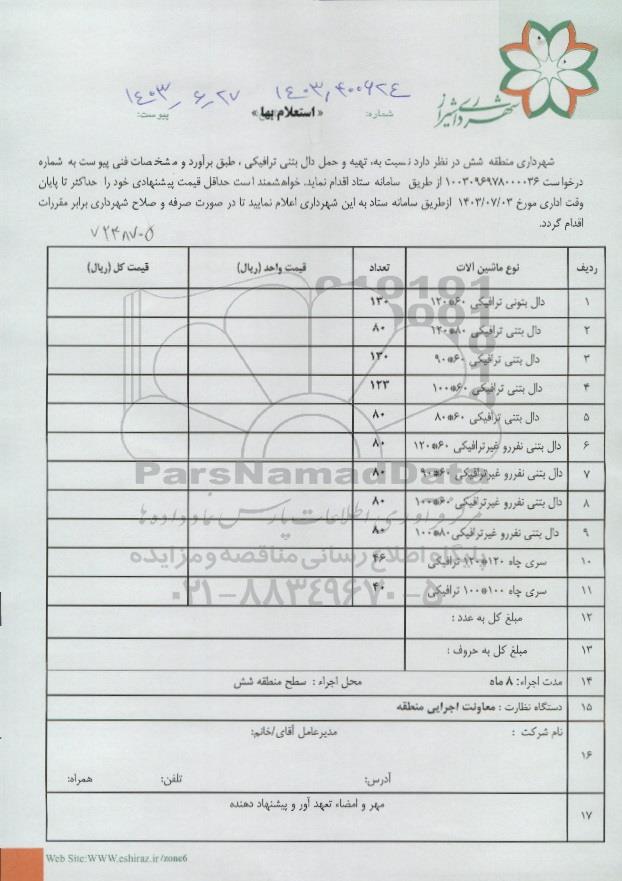 شهرداری شیراز
۱۴۰۳٫۴۰۰۶۲۴
۱۴۰۳٫۶٫۲۷
شماره:
« استعلام بها »
پیوست:
شهرداری منطقه شش در نظر دارد نسبت به، تهیه و حمل دال بتنی ترافیکی ، طبق برآورد و مشخصات فنی پیوست به شماره
درخواست ۱۰۰۳۰۹۶۹۷۸۰۰۰۰۳۶ از طریق سامانه ستاد اقدام نماید. خواهشمند است حداقل قیمت پیشنهادی خود را حداکثر تا پایان
وقت اداری مورخ ۱۴۰۳/۰۷/۰۳ ازطریق سامانه ستاد به این شهرداری اعلام نمایید تا در صورت صرفه و صلاح شهرداری برابر مقررات
اقدام گردد.
ردیف نوع ماشین آلات تعداد قیمت واحد (ریال) قیمت کل (ریال)
۱ دال بتونی ترافیکی ۶۰*۱۲۰ ۱۳۰
۲ دال بتنی ترافیکی ۸۰*۱۲۰ ۸۰
۳ دال بتنی ترافیکی ۶۰*۹۰ ۱۳۰
۴ دال بتنی ترافیکی ۶۰*۱۰۰ ۱۲۳
۵ دال بتنی ترافیکی ۶۰*۸۰ ۸۰
۶ دال بتنی نفررو غیرترافیکی ۶۰*۱۲۰ ۸۰
۷ دال بتنی نفررو غیرترافیکی ۶۰*۹۰ ۸۰
۸ دال بتنی نفررو غیرترافیکی ۶۰*۱۰۰ ۸۰
۹ دال بتنی نفررو غیرترافیکی ۸۰*۱۰۰ ۸۰
۱۰ سری چاه ۱۲۰*۱۲۰ ترافیکی ۴۶
۱۱ سری چاه ۱۰۰*۱۰۰ ترافیکی ۴۰
۱۲ مبلغ کل به عدد :
۱۳ مبلغ کل به حروف :
۱۴ مدت اجراء: ۸ ماه محل اجراء : سطح منطقه شش
۱۵ دستگاه نظارت : معاونت اجرایی منطقه
نام شرکت : مدیرعامل آقای/خانم:
۱۶
آدرس: تلفن: همراه:
مهر و امضاء تعهد آور و پیشنهاد دهنده
۱۷
ParsNamadData
پایگاه اطلاع رسانی مناقصه و مزایده
۰۲۱-۸۸۳۴۹۶۷۰-۵
Web Site:WWW.eshiraz.ir/zone6